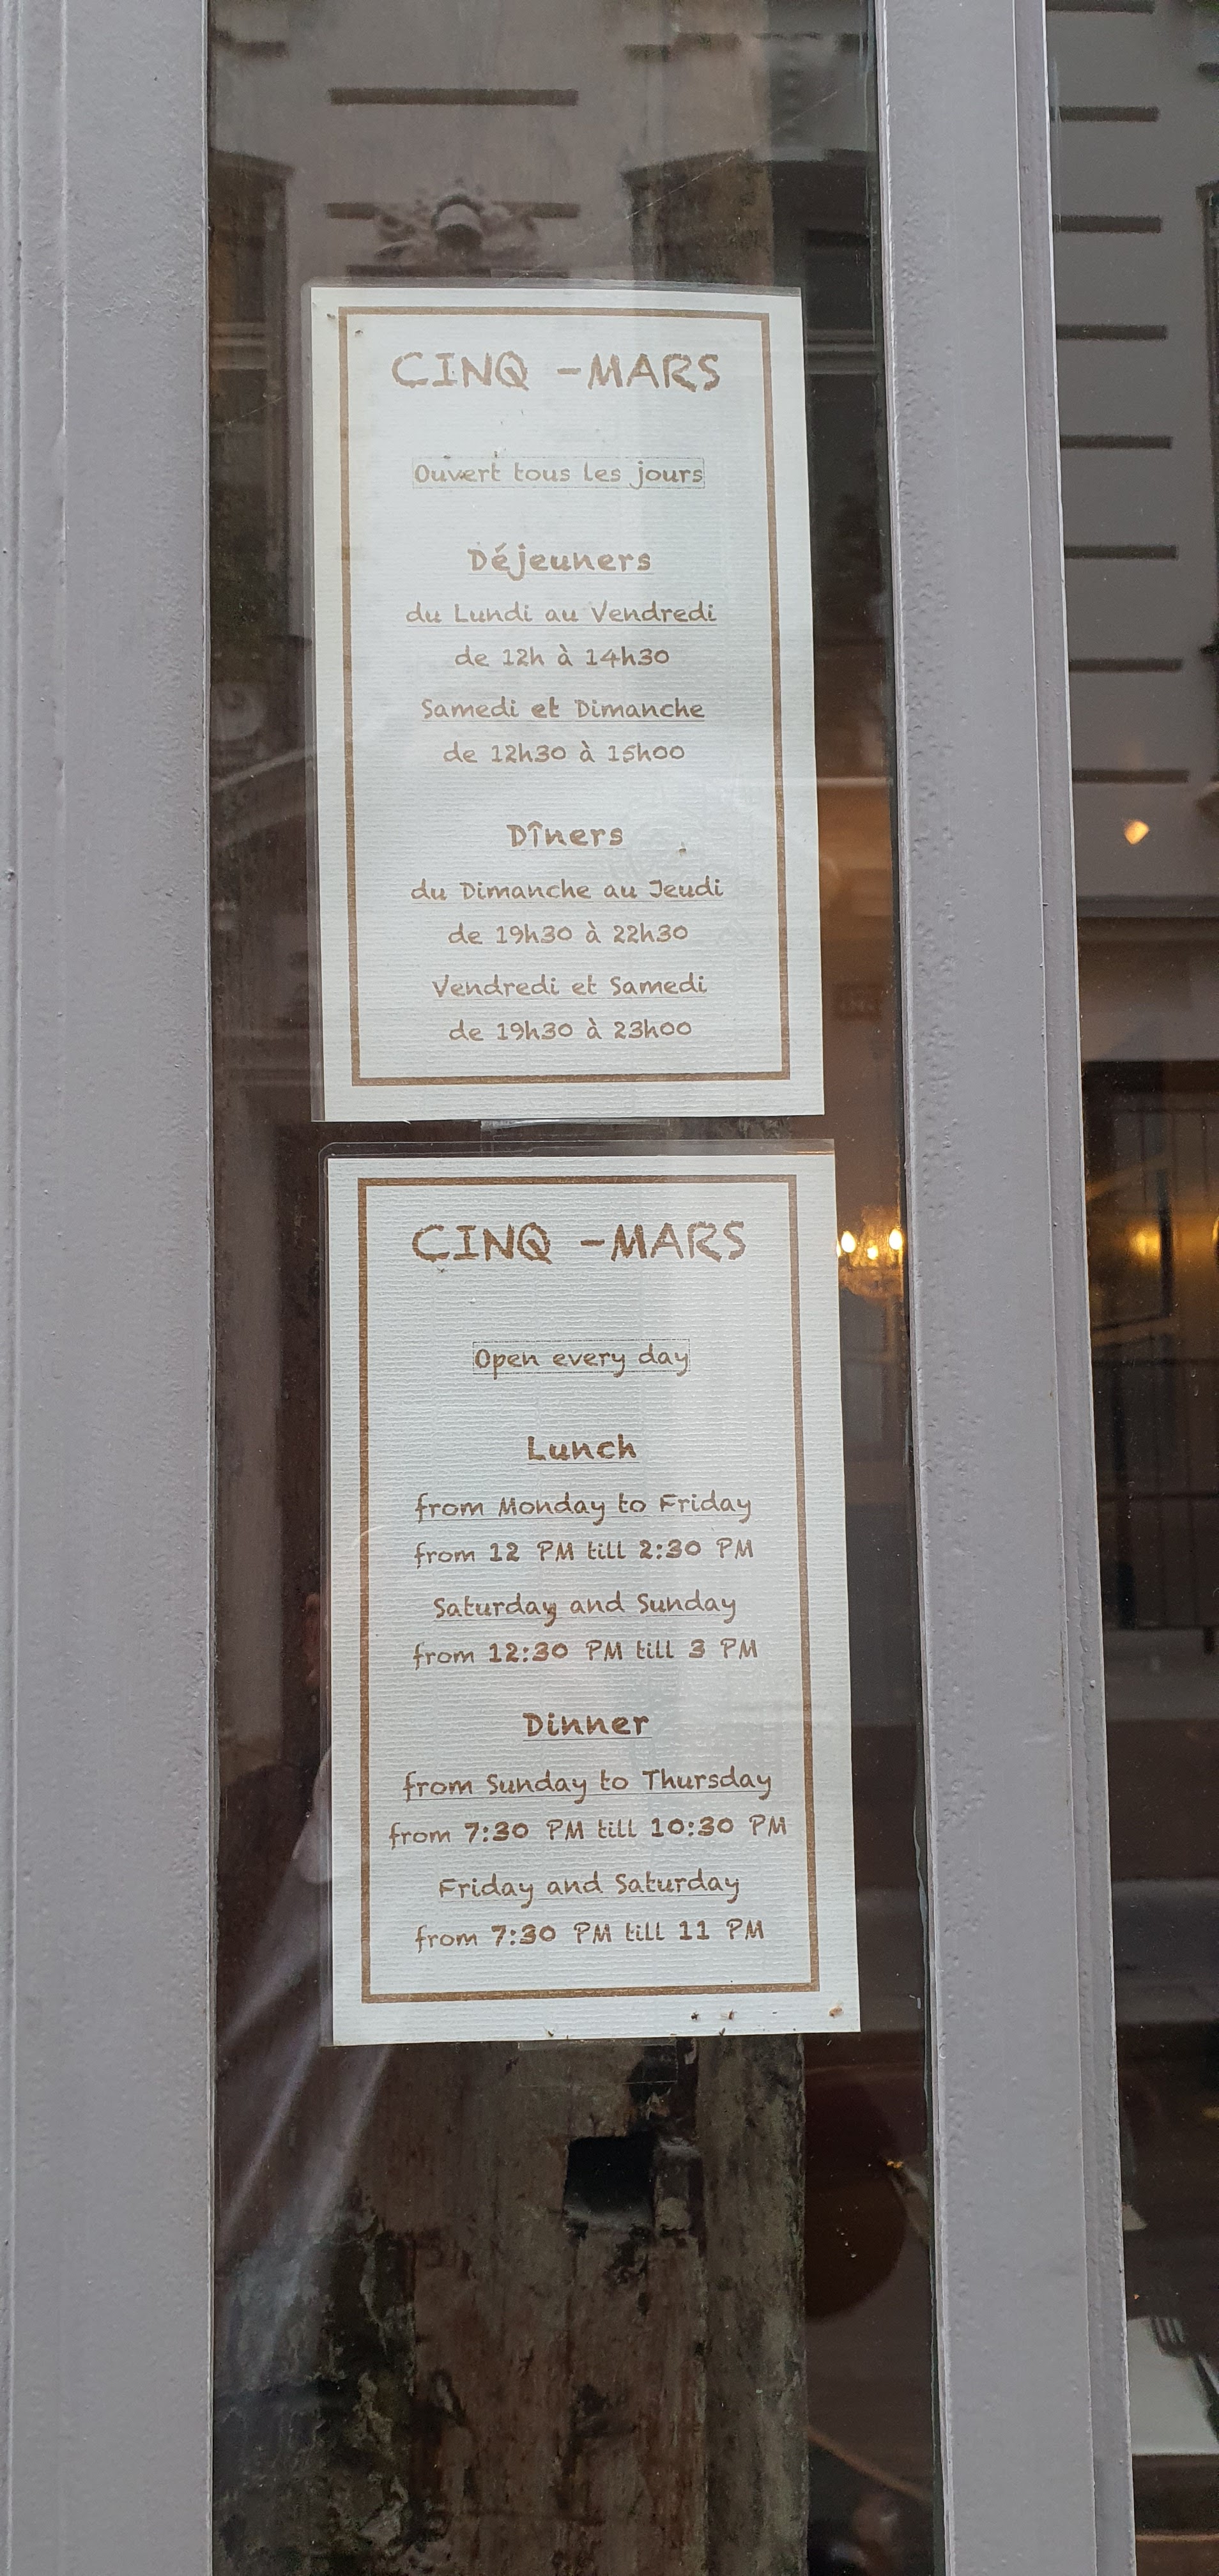 CINQ -MARS
Ouvert tous les jours
Déjeuners
du Lundi au Vendredi
de 12h à 14h30
Samedi et Dimanche
de 12h30 à 15h00
Dîners
du Dimanche au Jeudi
de 19h30 à 22h30
Vendredi et Samedi
de 19h30 à 23h00
CINQ -MARS
Open every day
Lunch
from Monday to Friday
from 12 PM till 2:30 PM
Saturday and Sunday
from 12:30 PM till 3 PM
Dinner
from Sunday to Thursday
from 7:30 PM till 10:30 PM
Friday and Saturday
from 7:30 PM till 11 PM